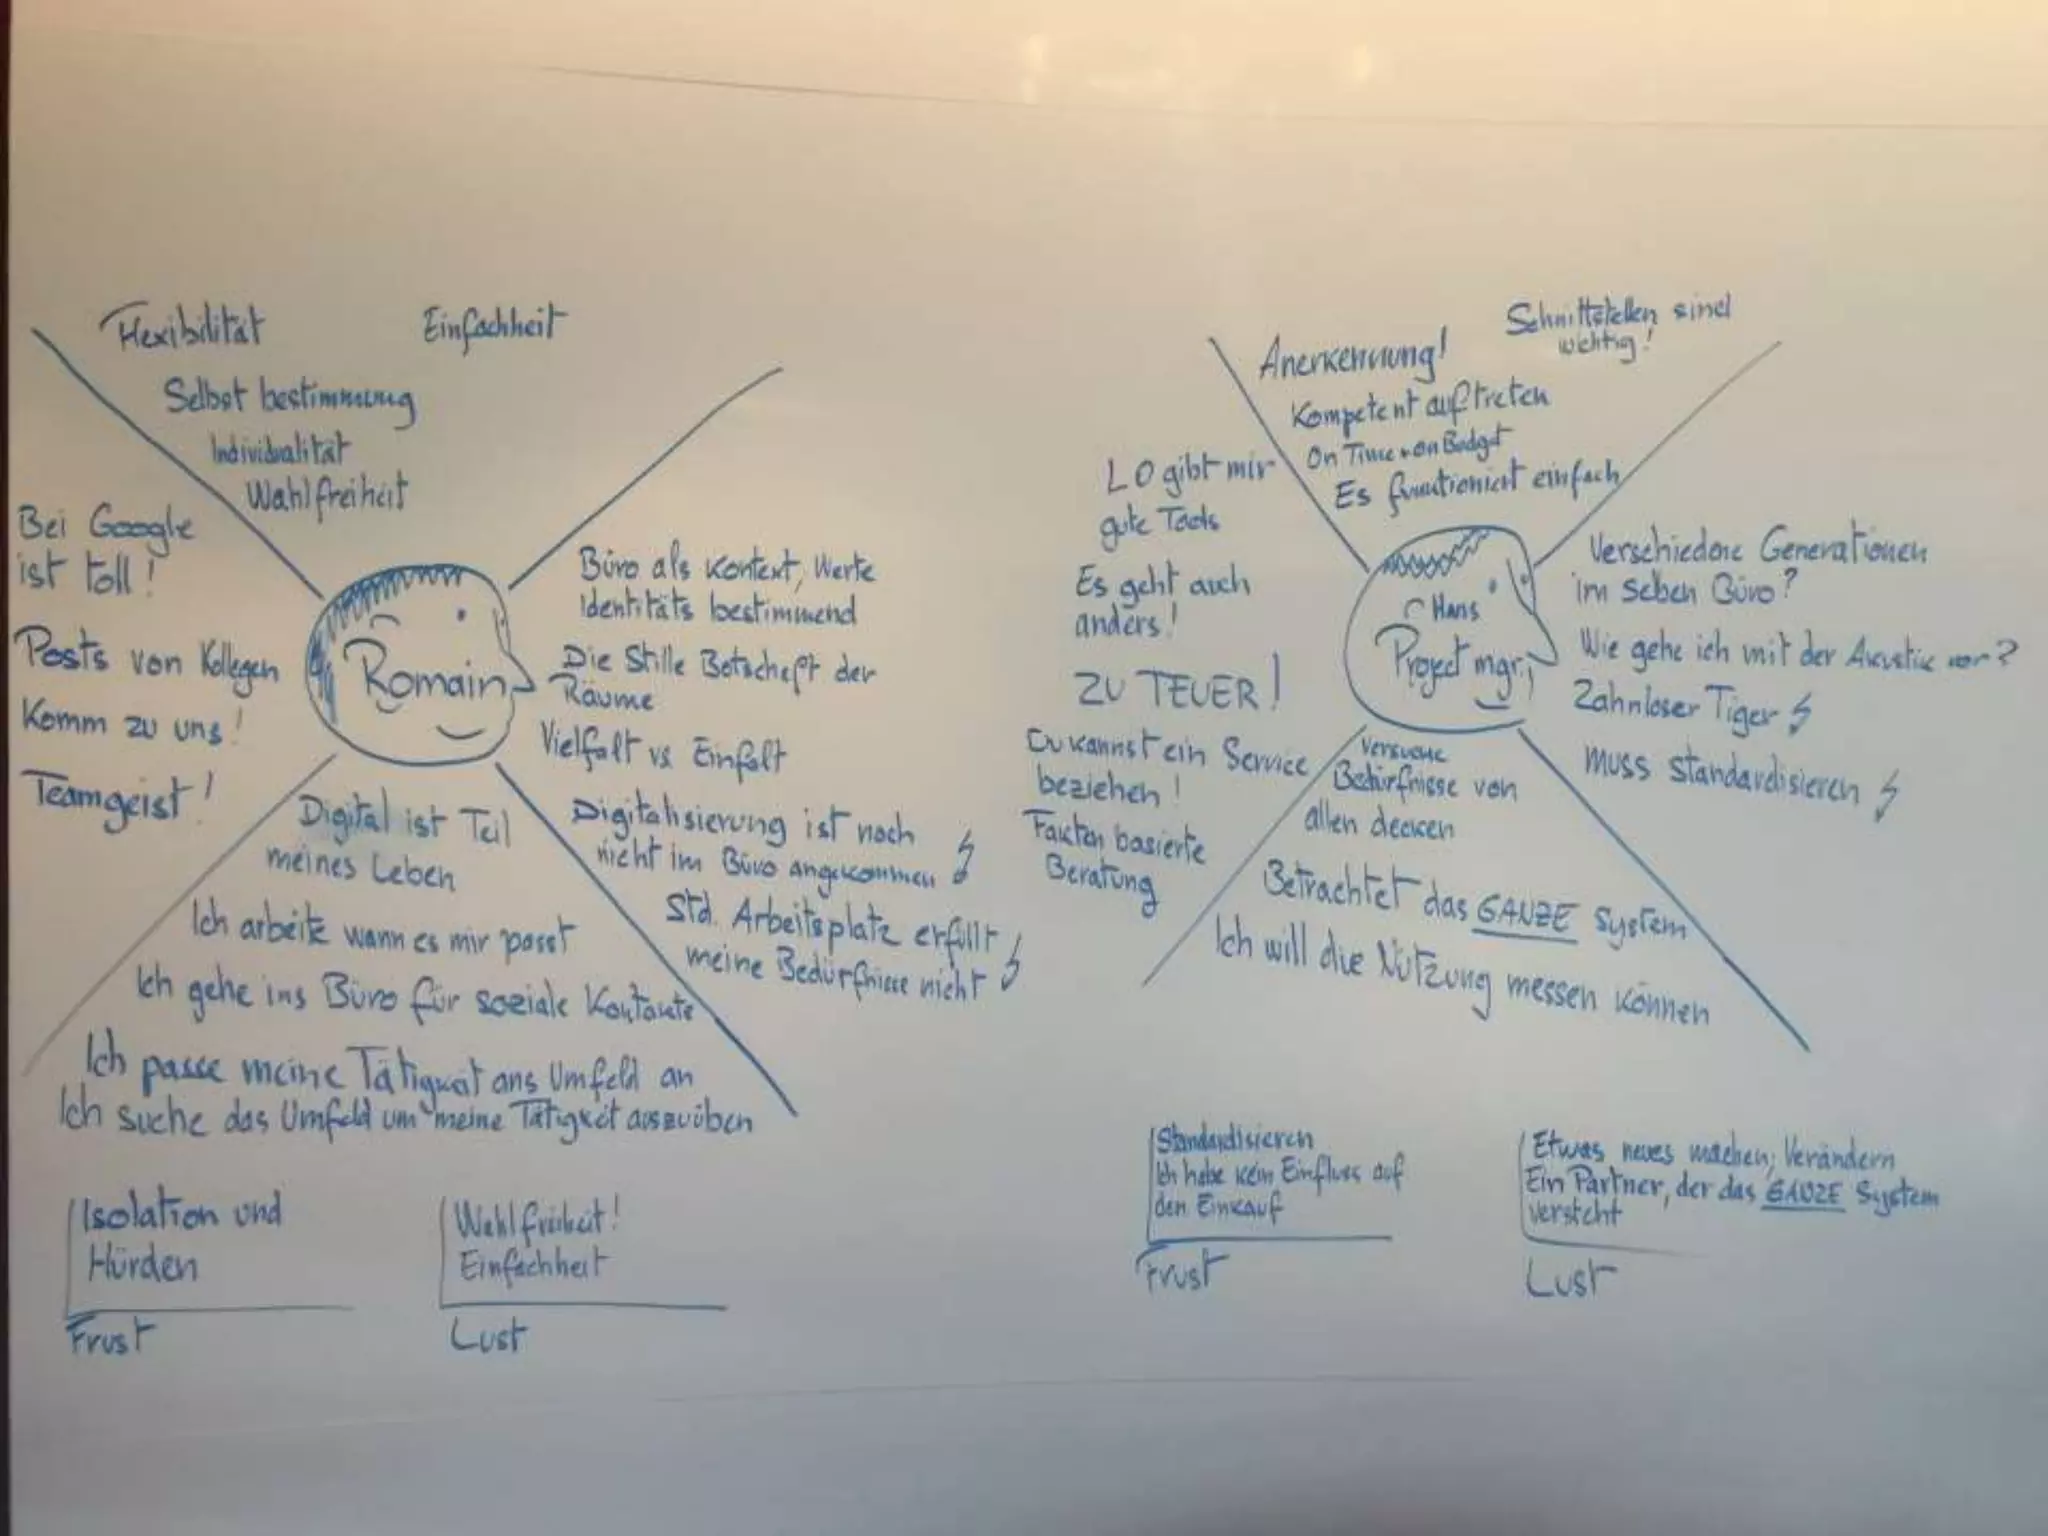 Flexibilität
Einfachheit
Selbst bestimmung
Individualität
Wahlfreiheit
Bei Google
ist toll!
Posts von Kollegen
Komm zu uns!
Teamgeist!
Romain
Büro als Kontext, Werte
Identitäts bestimmend
Die Stille Botschaft der
Räume
Vielfalt vs Einfalt
Digitalisierung ist noch
nicht im Büro angekommen
Std. Arbeitsplatz erfüllt
meine Bedürfnisse nicht
Digital ist Teil
meines Leben
Ich arbeite wann es mir passt
Ich gehe ins Büro für soziale Kontakte
Ich passe meine Tätigkeit ans Umfeld an
Ich suche das Umfeld um meine Tätigkeit auszuüben
Isolation und
Hürden
Frust
Wahlfreiheit!
Einfachheit
Lust
Schnittstellen sind
wichtig!
Anerkennung!
Kompetent auftreten
On Time + on Budget
Es funktioniert einfach
LO gibt mir
gute Tools
Es geht auch
anders!
ZU TEUER!
Du kannst ein Service
beziehen!
Fakten basierte
Beratung
Hans
Project mgr.
Verschiedene Generationen
im selben Büro?
Wie gehe ich mit der Akustik vor?
Zahnloser Tiger
muss standardisieren
Versuche
Bedürfnisse von
allen decken
Betrachtet das GANZE System
Ich will die Nutzung messen können
Standardisieren
Ich habe kein Einfluss auf
den Einkauf
Frust
Etwas neues machen, Verändern
Ein Partner, der das GANZE System
versteht
Lust